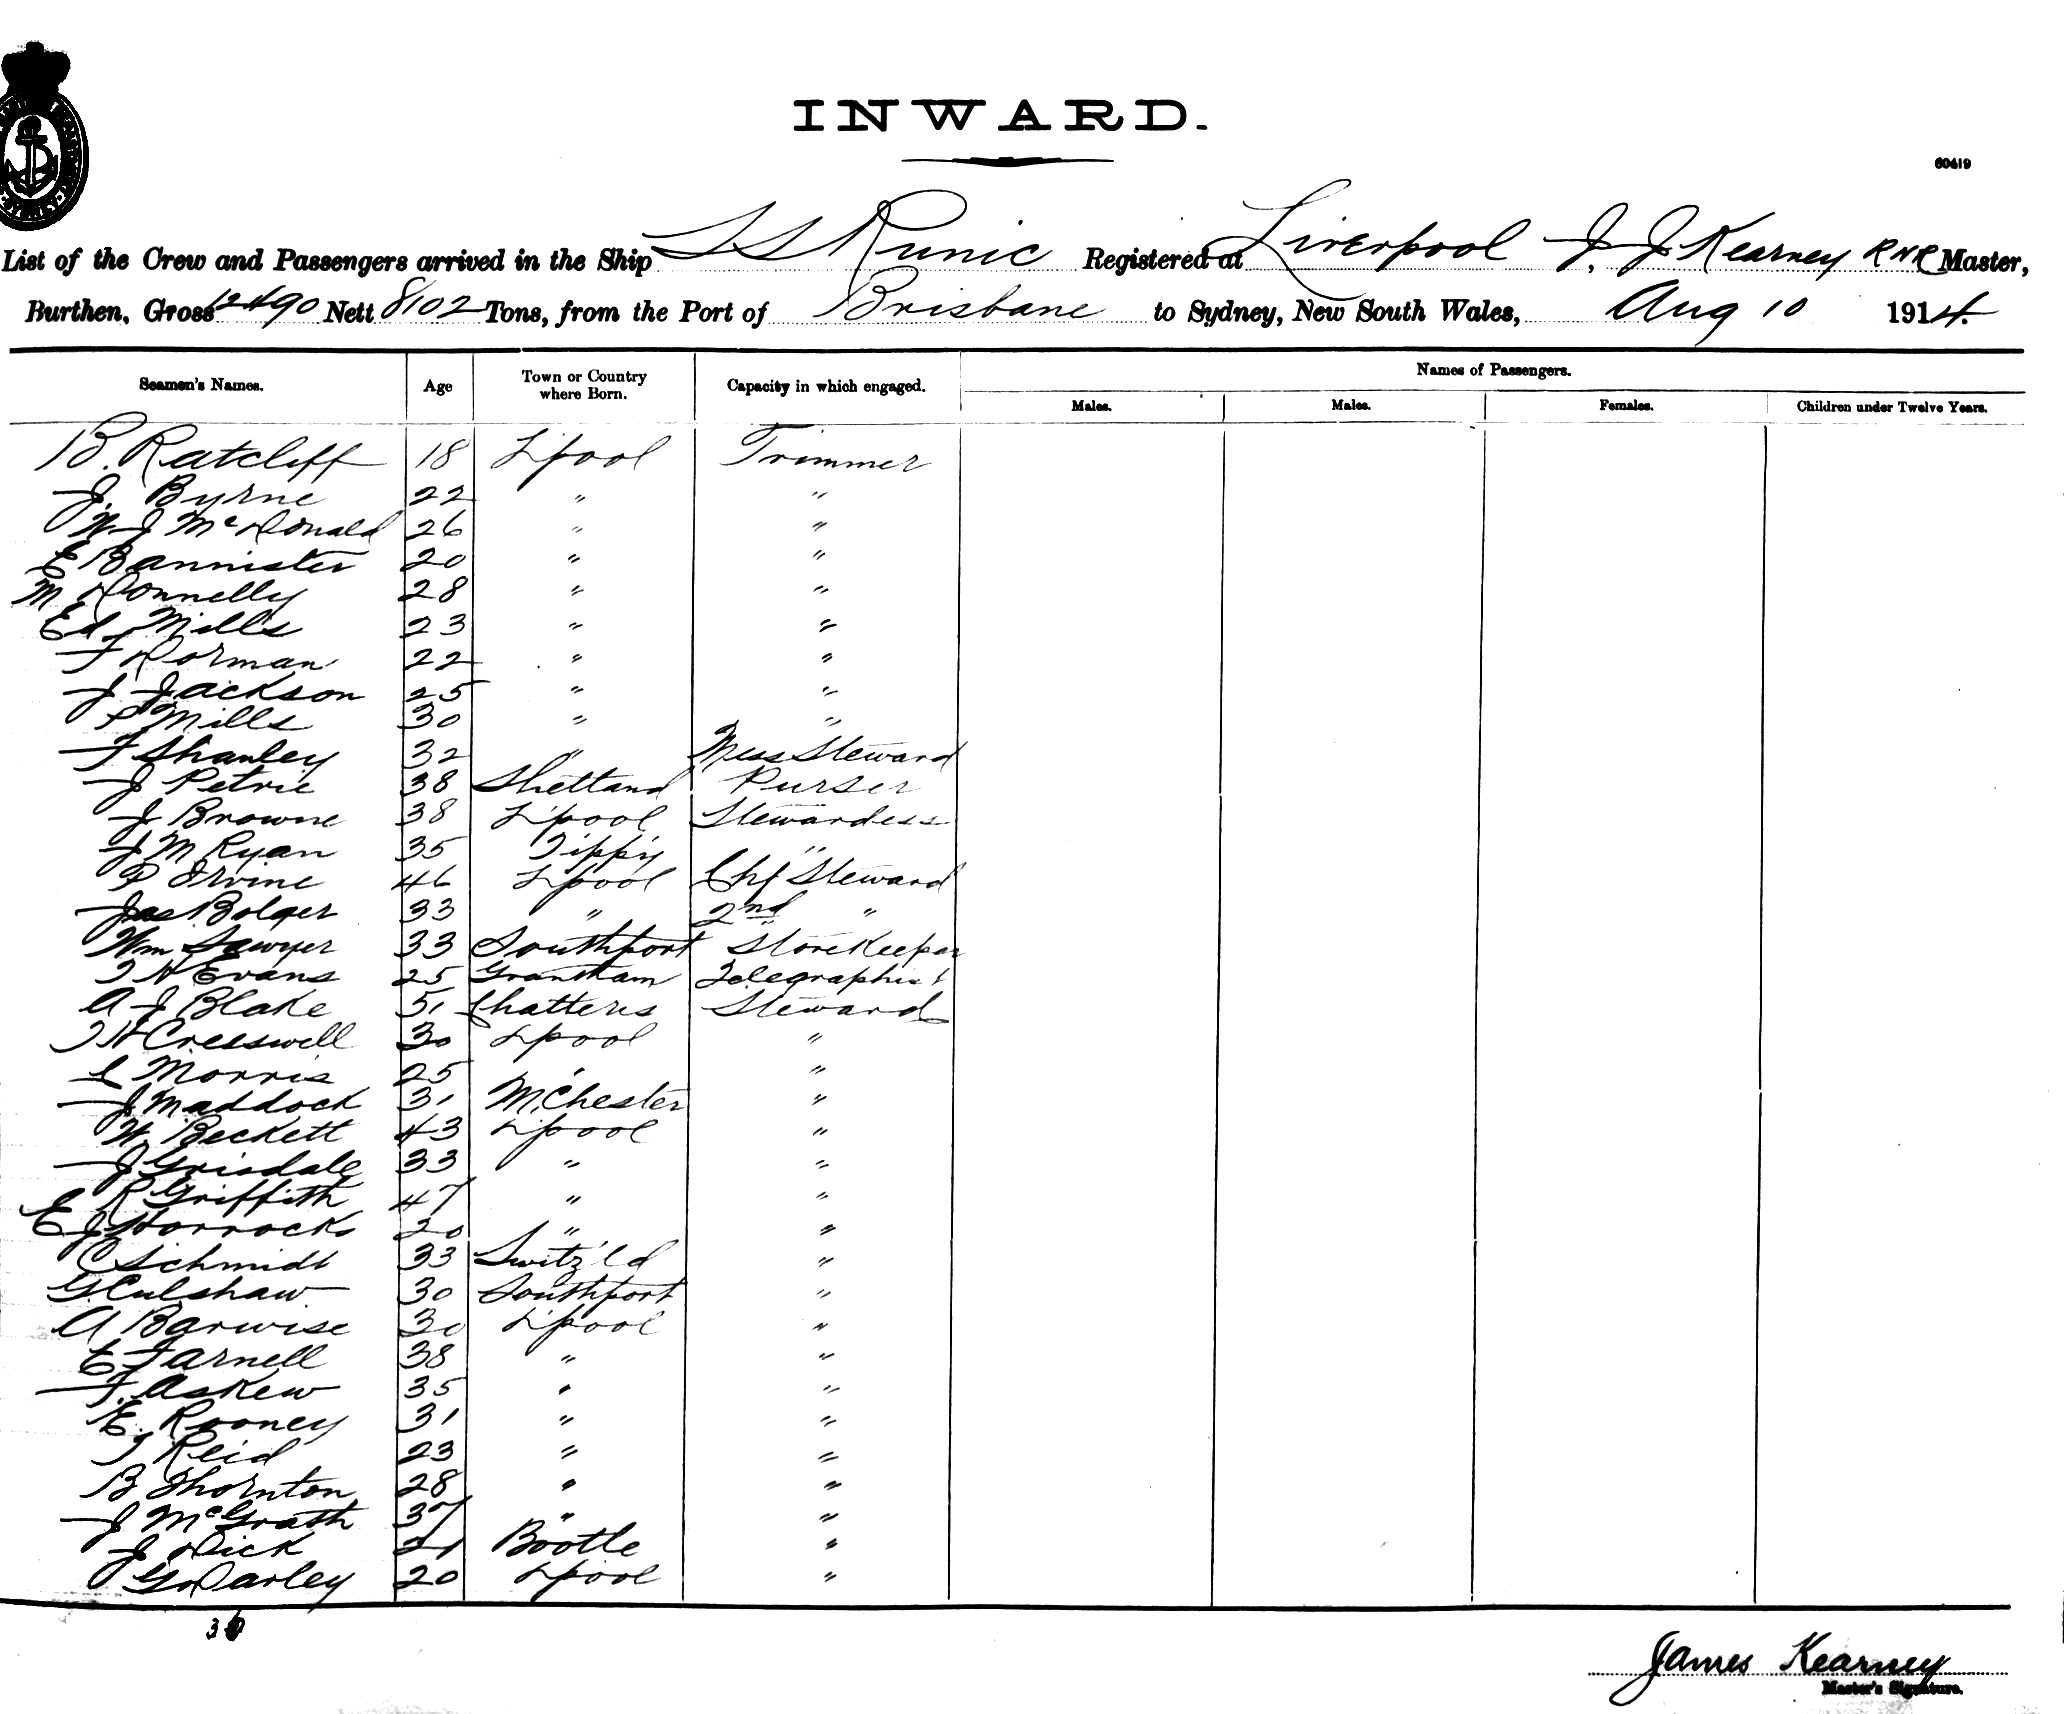 INWARD.
60419
List of the Crew and Passengers arrived in the Ship SS Runic Registered at Liverpool J. J Kearney RNR Master,
Burthen, Gross 12490 Nett 8102 Tons, from the Port of Brisbane to Sydney, New South Wales, Aug 10 1914.
Seamen's Names. Age Town or Country where Born. Capacity in which engaged. Names of Passengers.
Males. Males. Females. Children under Twelve Years.
B. Ratcliff 18 L'pool Trimmer
J. Byrne 22 " "
W J McDonald 26 " "
E Bannister 20 " "
M Donnelly 28 " "
Ed Mills 23 " "
F Dorman 22 " "
J Jackson 25 " "
P Mills 30 " "
F Shanley 32 " Mess Steward
J Petrie 38 Shetland Purser
J Browne 38 L'pool Stewardess
J M Ryan 35 Tipp'y "
P Irvine 46 L'pool Chf Steward
Jas Bolger 33 " 2nd "
Wm Sawyer 33 Southport StoreKeeper
T H Evans 25 Grantham Telegraphist
A J Blake 51 Chatteris Steward
T H Cresswell 30 L'pool "
E Morris 25 " "
J Maddock 31 M'Chester "
W. Beckett 43 L'pool "
J Grisdale 33 " "
R Griffith 47 " "
E J Horrocks 20 " "
C Schmidt 33 Switz'ld "
G Culshaw 30 Southport "
A Barwise 30 L'pool "
E Farnell 38 " "
F. Askew 35 " "
E. Rooney 31 " "
T Reid 23 " "
B Thornton 28 " "
J McGrath 37 " "
J Dick 21 Bootle "
G Darley 20 L'pool "
36
James Kearney
Master's Signature.